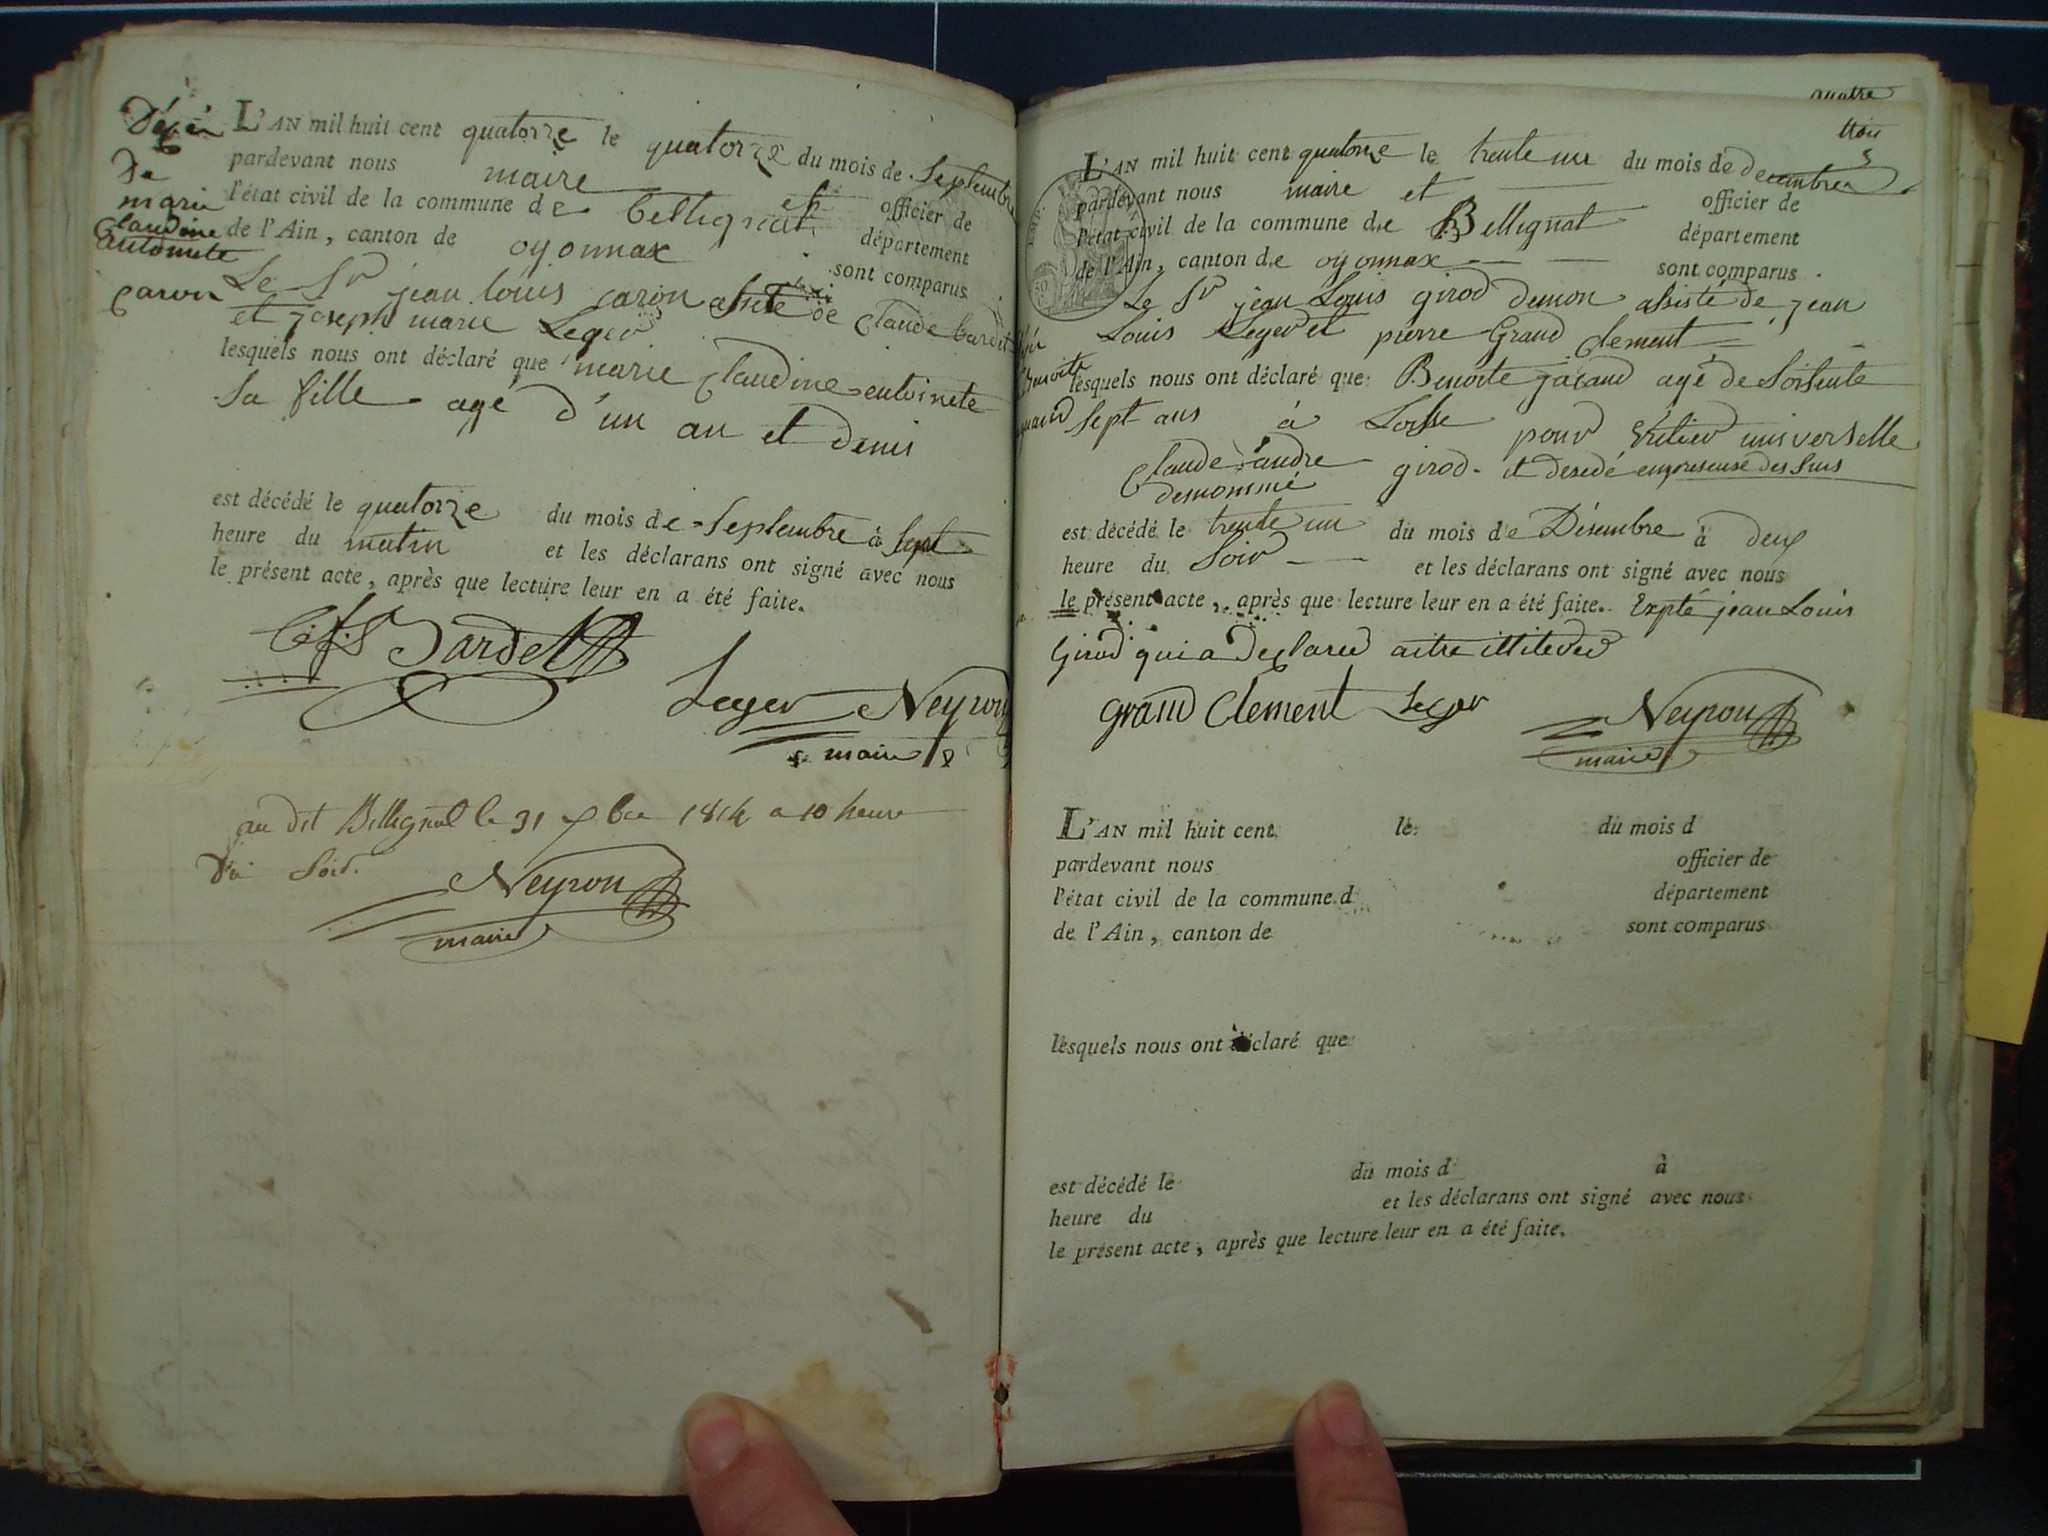 Déçèn
de
marie
Claudine
antoinete
caron
L'AN mil huit cent quatorze le quatorze du mois de Septembre
pardevant nous maire et officier de
l'état civil de la commune de bellignat département
de l'Ain, canton de oyonnax sont comparus
Le Sr jean louis caron assisté de Claude bardet
et joseph marie Leger
lesquels nous ont déclaré que marie Claudine entoinete
sa fille agé d'un an et demis
est décédé le quatorze du mois de Septembre à sept
heure du matin et les déclarans ont signé avec nous
le présent acte, après que lecture leur en a été faite.
Bardet
Leger Neyron
maire
au dit Bellignat le 31 xbre 1814 a 10 heure
du soir.
Neyron
maire
quatre
L'AN mil huit cent quatorze le trente un du mois de decembre
pardevant nous maire et officier de
l'état civil de la commune de Bellignat département
de l'Ain, canton de oyonnax sont comparus
Le Sr jean Louis girod demon assisté de jean
Louis Leger et pierre Grand Clement
lesquels nous ont déclaré que Benoite jacand agé de soisente
sept ans à Loisse pour éritier universelle
Claude andre girod et desedé
denommé
est décédé le trente un du mois de Désembre à deux
heure du Soir et les déclarans ont signé avec nous
le présent acte, après que lecture leur en a été faite. Expté jean Louis
Girod qui a declared aitre illitered
grand Clement Leger Neyron
maire
L'AN mil huit cent le du mois d
pardevant nous officier de
l'état civil de la commune d département
de l'Ain, canton de sont comparus
lesquels nous ont déclaré que
est décédé le du mois d à
heure du et les déclarans ont signé avec nous
le présent acte, après que lecture leur en a été faite.